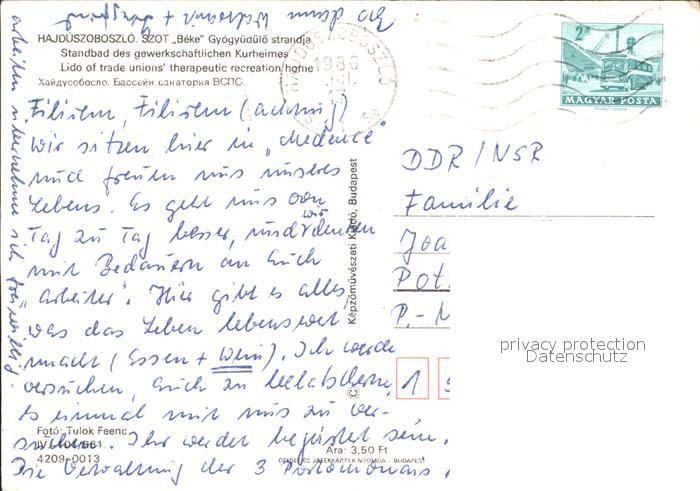 HAJDÚSZOBOSZLÓ. SZOT „Béke" Gyógyüdülő strandja
Standbad des gewerkschaftlichen Kurheimes
Lido of trade unions' therapeutic recreation home
Хайдусобосло. Бассейн санатория ВСПС.
HAJDÚSZOBOSZLÓ
1986
2 Ft
MAGYAR POSTA
Filirem, Filirem (achtung)
wir sitzen hier in „medence"
und freuen uns unseres
Lebens. Es geht uns von
Tag zu Tag besser, und wir denken
mit Bedauern an Euch
„arbeiter". Hier gibt es alles,
was das Leben lebenswert
macht (Essen + Wein). Ich werde
versuchen, Euch zu
Es einmal mit uns zu ver-
suchen. Ihr werdet begeistert sein.
Die Verwaltung der 3 Portomonais
DDR / NSR
Familie
Joa
Pot.
P.-
1
privacy protection
Datenschutz
Képzőművészeti Kiadó, Budapest
Fotó: Tulok Ferenc
4209-0013
Ára: 3,50 Ft
OFFSET ÉS JÁTÉKKÁRTYA NYOMDA – BUDAPEST